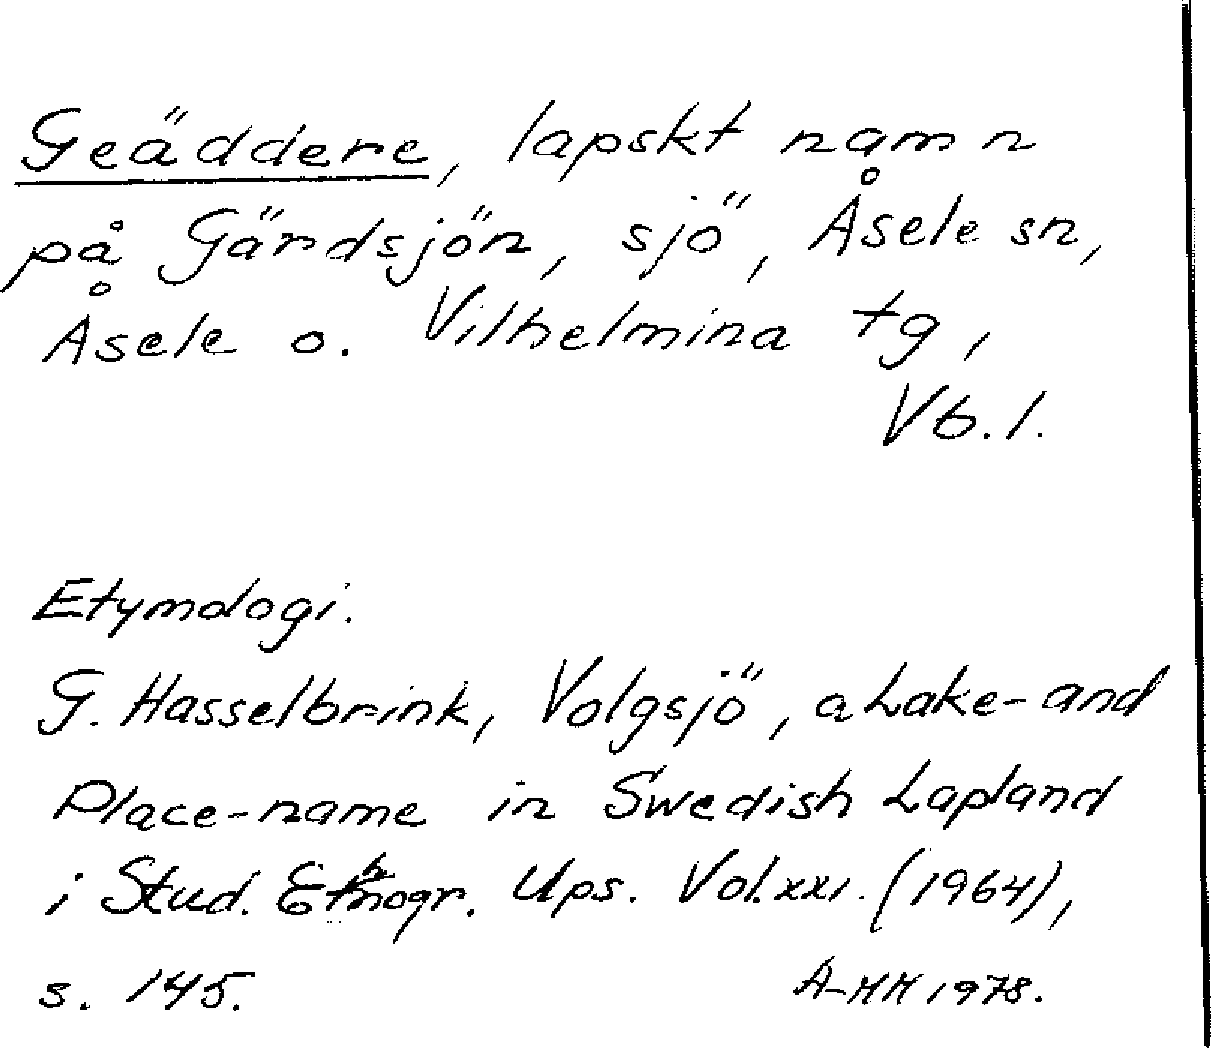 Geäddere, lapskt namn
på Gärdsjön, sjö, Åsele sn,
Åsele o. Vilhelmina tg,
Vb.l.
Etymologi.
G. Hasselbrink, Volgsjö, a Lake- and
Place-name in Swedish Lapland
i Stud. Ethnogr. Ups. Vol. XXI. (1964),
s. 145.
A-MM 1978.